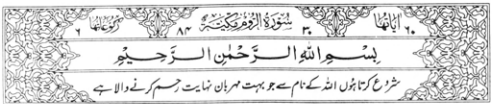 اٰیَاتُهَا ٦٠ ٣٠ سُوْرَةُ الرُّوْمِ مَكِّيَّةٌ ٨٤ رُكُوْعَاتُهَا ٦
بِسْمِ اللهِ الرَّحْمٰنِ الرَّحِيْمِ
شروع کرتا ہوں اللہ کے نام سے جو بہت مہربان نہایت رحم کرنے والا ہے